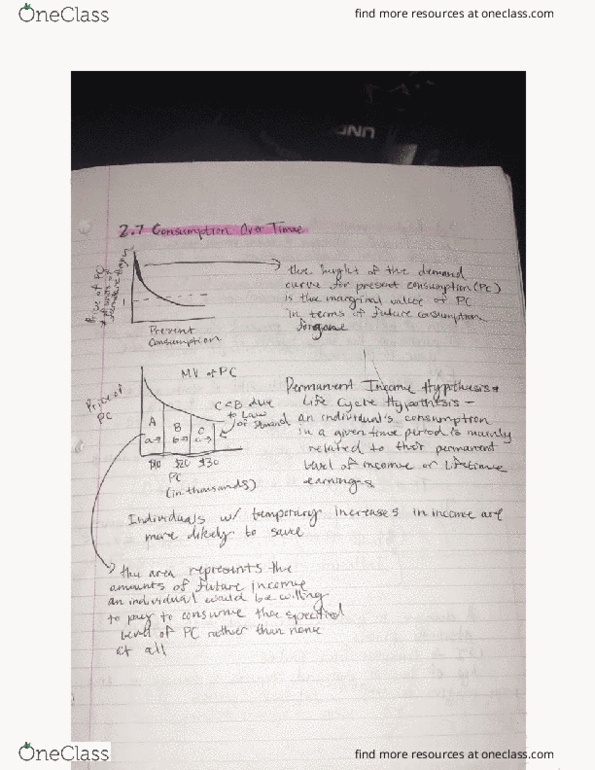 OneClass
find more resources at oneclass.com
2.7 Consumption Over Time
Price of PC
Present
Consumption
the height of the demand
curve for present consumption (PC)
is the marginal value of PC
in terms of future consumption
forgone
MV of PC
Price of
PC
C<B due
to Law
of Demand
A
B
C
a→
b→
c→
$10 $20 $30
PC
(in thousands)
Permanent Income Hypothesis +
Life Cycle Hypothesis –
an individual's consumption
in a given time period is mainly
related to their permanent
level of income or lifetime
earnings
Individuals w/ temporary increases in income are
more likely to save
the area represents the
amounts of future income
an individual would be willing
to pay to consume the specified
level of PC rather than none
at all
OneClass
find more resources at oneclass.com